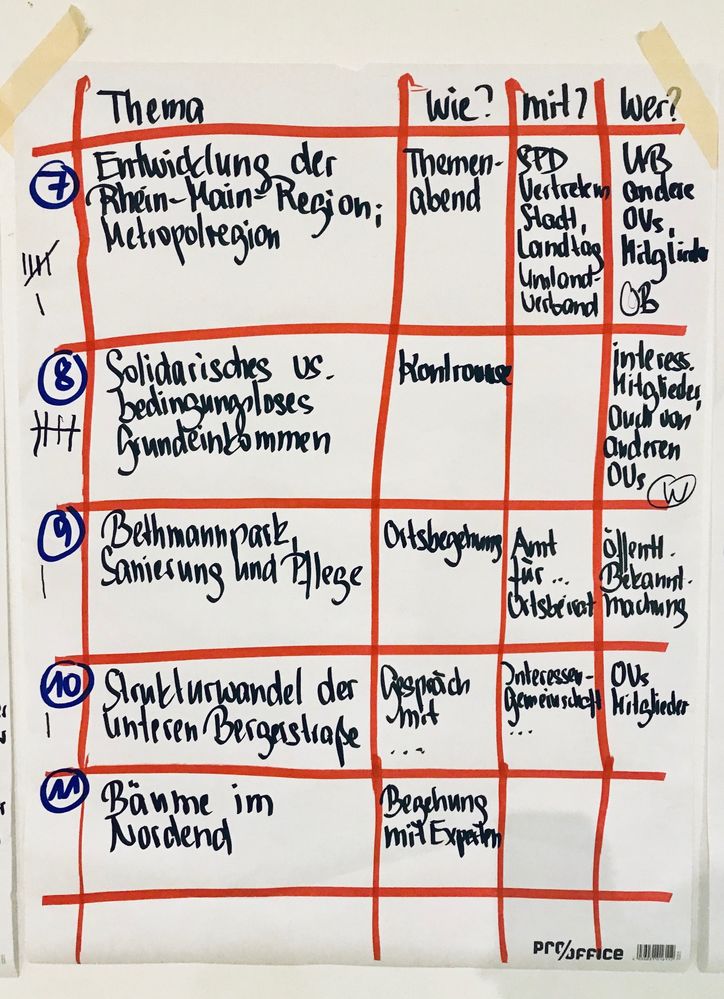 Thema wie? mit? wer?
7
Entwicklung der
Rhein-Main-Region;
Metropolregion
Themen-
abend
SPD
Vertreter in
Stadt,
Landtag
Umland-
verband
UB
andere
OVs,
Mitglieder
OB
8
Solidarisches vs.
bedingungsloses
Grundeinkommen
Kontroverse
interess.
Mitglieder,
auch von
anderen
OVs
W
9
Bethmannpark,
Sanierung und Pflege
Ortsbegehung
Amt
für ...
Ortsbeirat
öffentl.
Bekannt-
machung
10
Strukturwandel der
unteren Bergerstraße
Gespräch
mit
...
Interessen-
gemeinschaft
...
OVs
Mitglieder
11
Bäume im
Nordend
Begehung
mit Experten
PRO/OFFICE